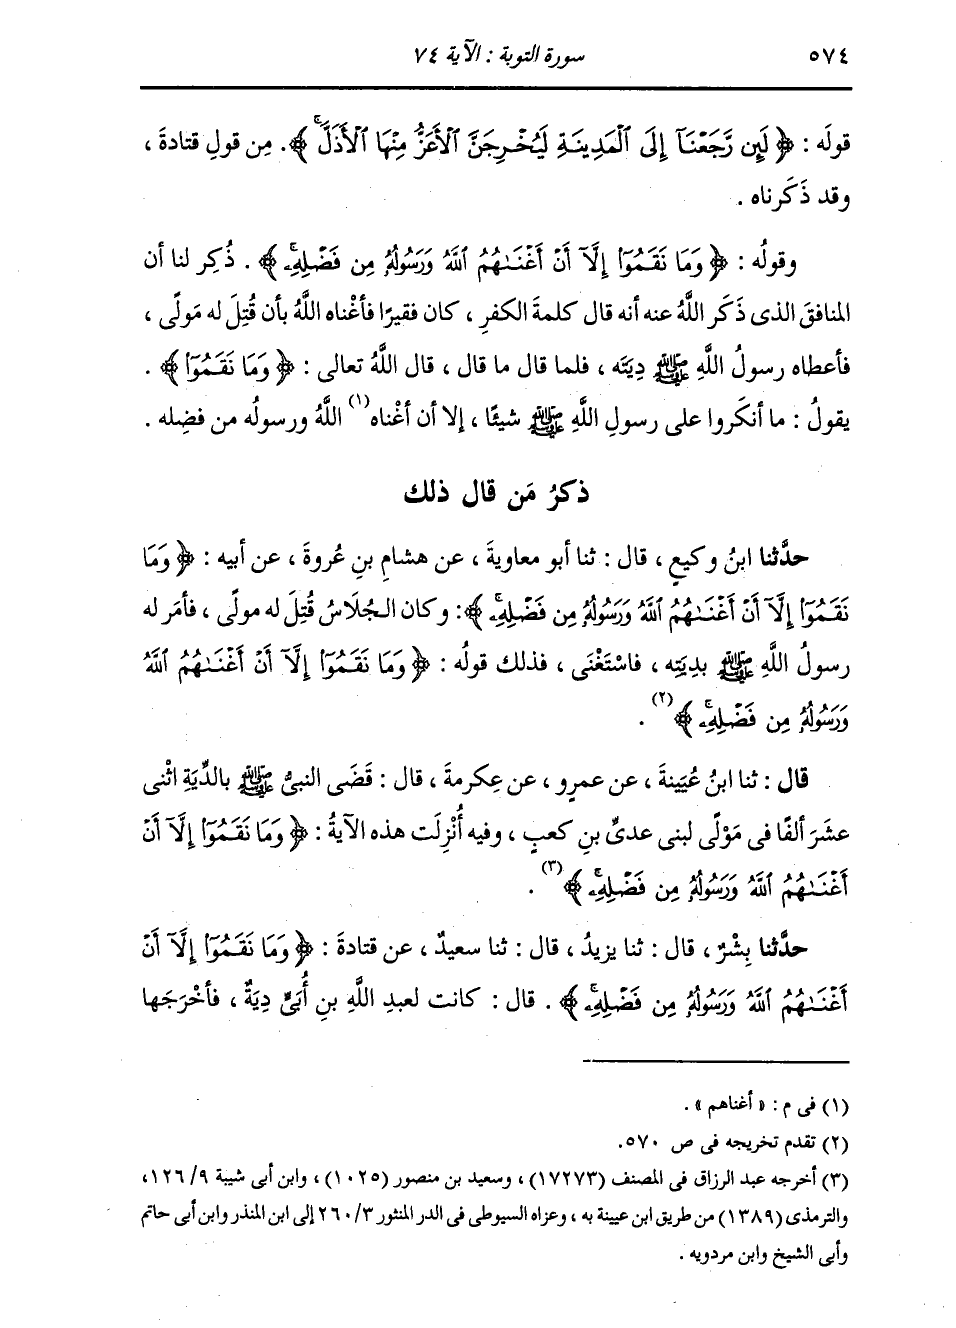 ٥٧٤ سورة التوبة : الآية ٧٤
قولَه : ﴿ لَئِن رَّجَعْنَآ إِلَى ٱلْمَدِينَةِ لَيُخْرِجَنَّ ٱلْأَعَزُّ مِنْهَا ٱلْأَذَلَّۚ ﴾ . مِن قولِ قتادةَ ،
وقد ذَكَرناه .
وقولُه : ﴿ وَمَا نَقَمُوٓا۟ إِلَّآ أَنْ أَغْنَىٰهُمُ ٱللَّهُ وَرَسُولُهُۥ مِن فَضْلِهِۦۚ ﴾ . ذُكِر لنا أن
المنافقَ الذى ذَكَر اللَّهُ عنه أنه قال كلمةَ الكفرِ ، كان فقيرًا فأغْناه اللَّهُ بأن قُتِلَ له مَولًى ،
فأعطاه رسولُ اللَّهِ ﷺ دِيَتَه ، فلما قال ما قال ، قال اللَّهُ تعالى : ﴿ وَمَا نَقَمُوٓا۟ ﴾ .
يقولُ : ما أنكَروا على رسولِ اللَّهِ ﷺ شيئًا ، إلا أن أغْناه(١) اللَّهُ ورسولُه من فضلِه .
ذكرُ مَن قال ذلك
حدَّثنا ابنُ وكيعٍ ، قال : ثنا أبو معاويةَ ، عن هشامِ بنِ عُروةَ ، عن أبيه : ﴿ وَمَا
نَقَمُوٓا۟ إِلَّآ أَنْ أَغْنَىٰهُمُ ٱللَّهُ وَرَسُولُهُۥ مِن فَضْلِهِۦۚ ﴾ : وكان الجُلَاسُ قُتِلَ له مولًى ، فأمَر له
رسولُ اللَّهِ ﷺ بدِيَتِه ، فاسْتَغْنَى ، فذلك قولُه : ﴿ وَمَا نَقَمُوٓا۟ إِلَّآ أَنْ أَغْنَىٰهُمُ ٱللَّهُ
وَرَسُولُهُۥ مِن فَضْلِهِۦۚ ﴾(٢) .
قال : ثنا ابنُ عُيَينةَ ، عن عمرٍو ، عن عِكرمةَ ، قال : قَضَى النبىُّ ﷺ بالدِّيَةِ اثْنى
عشَرَ ألفًا فى مَوْلًى لبنى عدىِّ بنِ كعبٍ ، وفيه أُنْزِلَت هذه الآيةُ : ﴿ وَمَا نَقَمُوٓا۟ إِلَّآ أَنْ
أَغْنَىٰهُمُ ٱللَّهُ وَرَسُولُهُۥ مِن فَضْلِهِۦۚ ﴾(٣) .
حدَّثنا بِشْرٌ ، قال : ثنا يزيدُ ، قال : ثنا سعيدٌ ، عن قتادةَ : ﴿ وَمَا نَقَمُوٓا۟ إِلَّآ أَنْ
أَغْنَىٰهُمُ ٱللَّهُ وَرَسُولُهُۥ مِن فَضْلِهِۦۚ ﴾ . قال : كانت لعبدِ اللَّهِ بنِ أُبَىٍّ دِيَةٌ ، فأخْرَجَها
(١) فى م : « أغناهم » .
(٢) تقدم تخريجه فى ص ٥٧٠.
(٣) أخرجه عبد الرزاق فى المصنف (١٧٢٧٣) ، وسعيد بن منصور (١٠٢٥) ، وابن أبى شيبة ٩/ ١٢٦،
والترمذى (١٣٨٩) من طريق ابن عيينة به ، وعزاه السيوطى فى الدر المنثور ٣/ ٢٦٠ إلى ابن المنذر وابن أبى حاتم
وأبى الشيخ وابن مردويه .